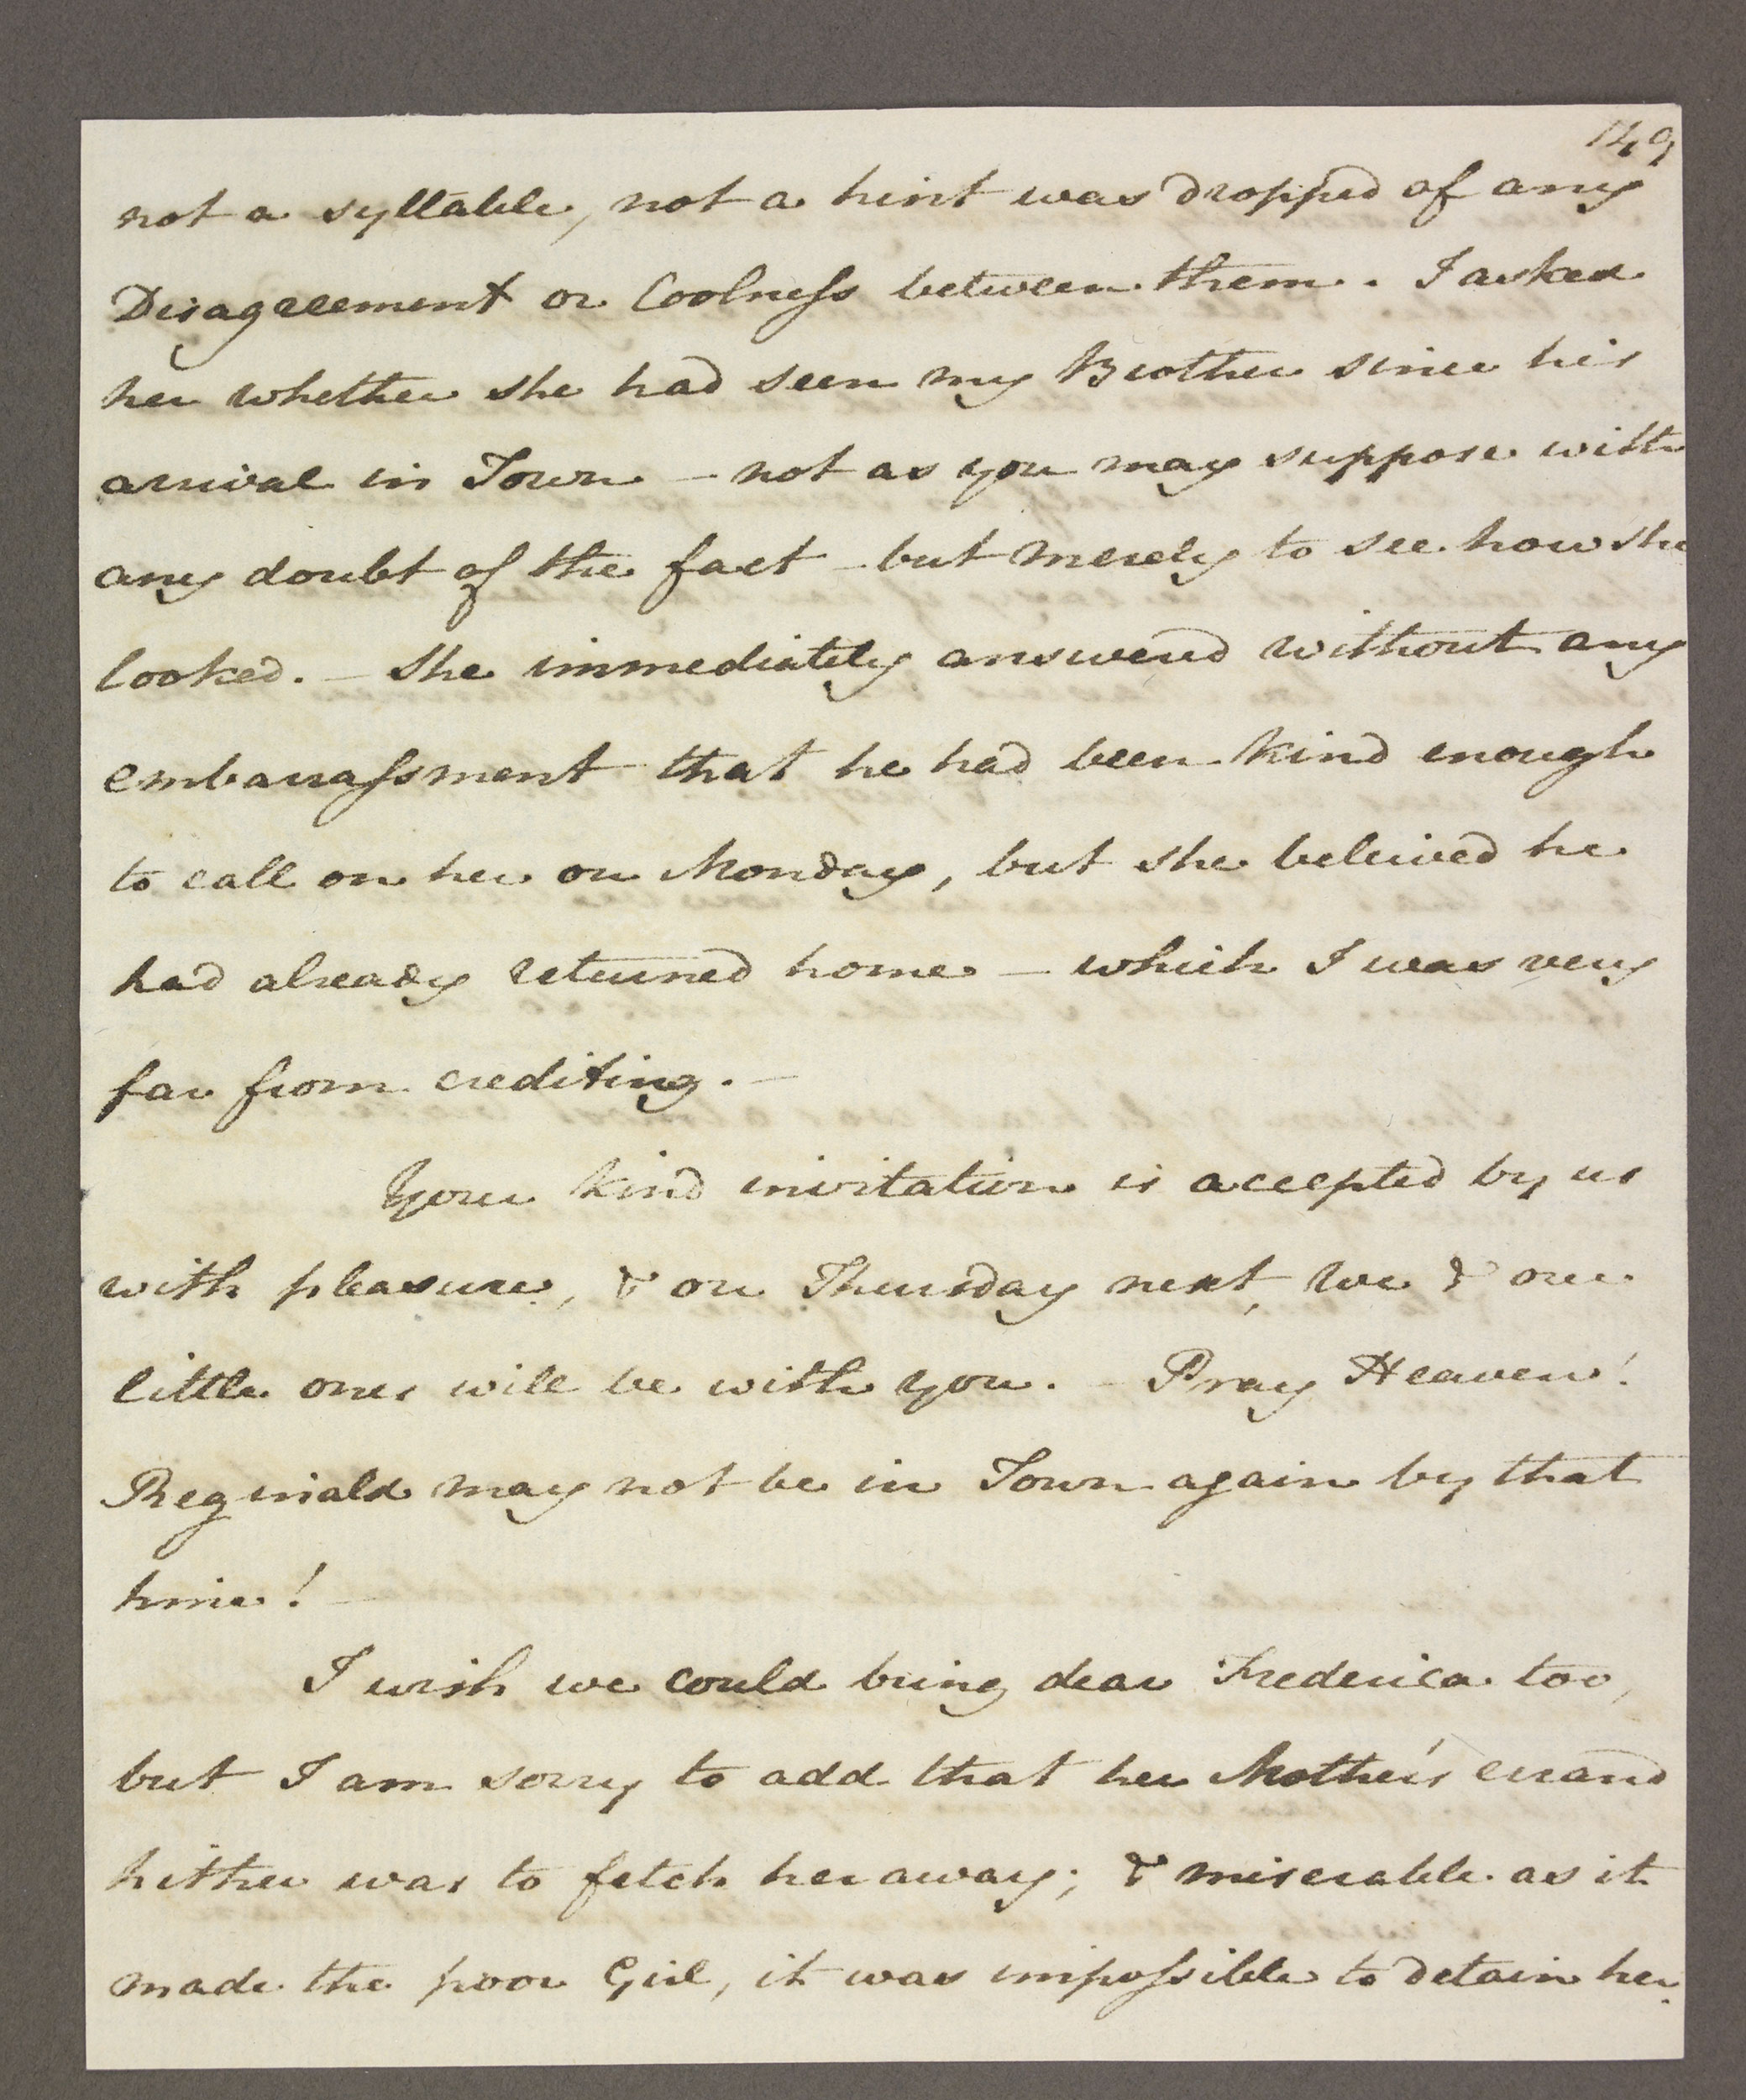 149
not a syllable, not a hint was dropped of any
Disagreement or Coolneſs between them. I asked
her whether she had seen my Brother since his
arrival in Town - not as you may suppose with
any doubt of the fact - but merely to see how she
looked. - She immediately answered without any
embarraſsment that he had been kind enough
to call on her on Monday, but she beleived he
had already returned home - which I was very
far from crediting. -
Your kind invitation is accepted by us
with pleasure, & on Thursday next, we & our
little ones will be with you. - Pray Heaven!
Reginald may not be in Town again by that
time! -
I wish we could bring dear Frederica too,
but I am sorry to add that her Mother's errand
hither was to fetch her away; & miserable as it
made the poor Girl, it was impoſsible to detain her.